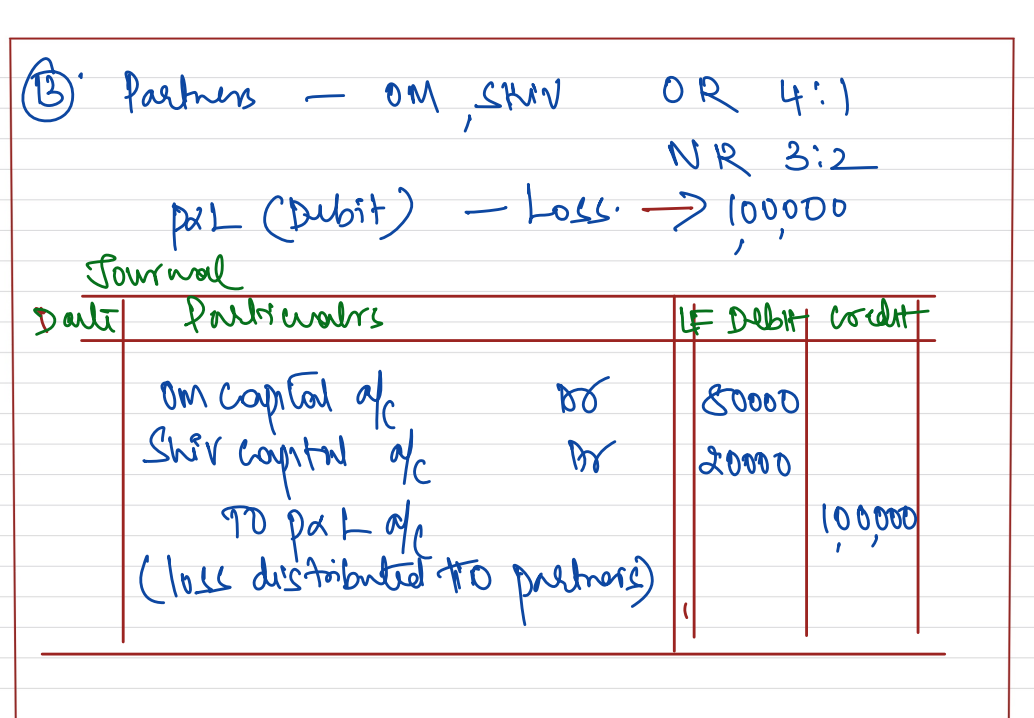 13. Partners - OM, SHIV OR 4:1
NR 3:2
P&L (Debit) - Loss. → 1,00,000
Journal
Date Particulars LF Debit Credit
OM capital a/c Dr 80000
Shiv capital a/c Dr 20000
TO P&L a/c 1,00,000
(loss distributed to partners)